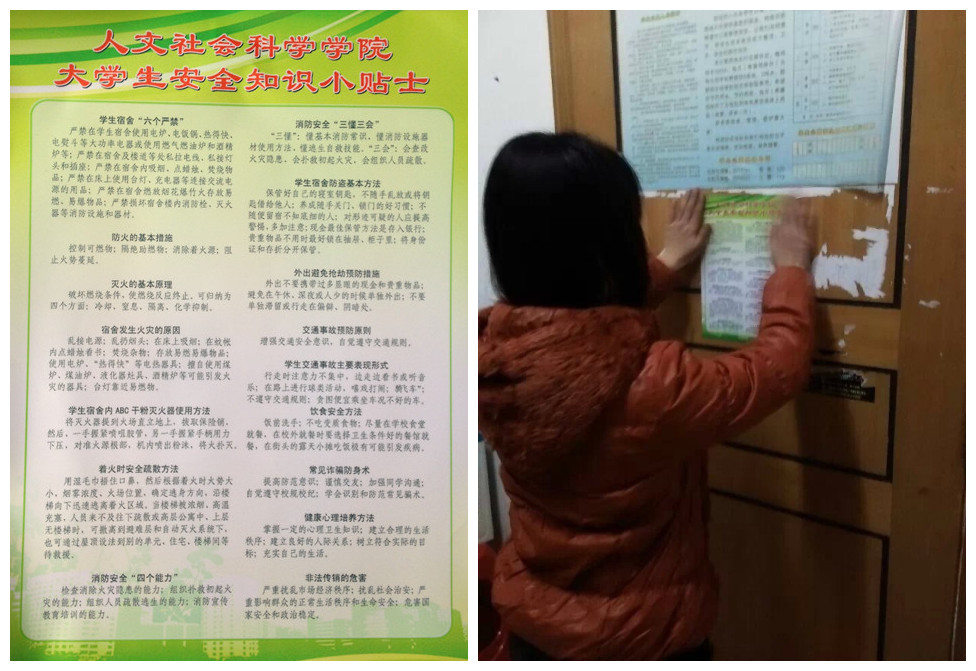 人文社会科学学院
大学生安全知识小贴士
学生宿舍“六个严禁”
严禁在学生宿舍使用电炉、电饭锅、热得快、
电熨斗等大功率电器或使用燃气燃油炉和酒精
炉等；严禁在宿舍及楼道等处私拉电线、私接灯
头和插座；严禁在宿舍内吸烟、点蜡烛、焚烧物
品；严禁在床上使用台灯、充电器等连接交流电
源的用品；严禁在宿舍燃放烟花爆竹火存放易
燃、易爆物品；严禁损坏宿舍楼内消防栓、灭火
器等消防设施和器材。
防火的基本措施
控制可燃物；隔绝助燃物；消除着火源；阻
止火势蔓延。
灭火的基本原理
破坏燃烧条件，使燃烧反应终止，可归纳为
四个方面：冷却、窒息、隔离、化学抑制。
宿舍发生火灾的原因
乱接电源；乱扔烟头；在床上吸烟；在蚊帐
内点蜡烛看书；焚烧杂物；存放易燃易爆物品；
使用电炉、“热得快”等电热器具；擅自使用煤
炉、煤油炉、液化器灶具、酒精炉等可能引发火
灾的器具；台灯靠近易燃物。
学生宿舍内ABC干粉灭火器使用方法
将灭火器提到火场直立地上，拔取保险销，
然后，一手握紧喷咀胶管，另一手握紧手柄用力
下压，对准火源根部，机内喷出粉沫，将火扑灭。
着火时安全疏散方法
用湿毛巾捂住口鼻，然后根据着火时火势大
小，烟雾浓度，火场位置，确定逃身方向，沿楼
梯向下迅速逃离着火区域。当楼梯被浓烟、高温
充塞，人员来不及往下疏散或高层公寓中，上层
无楼梯时，可撤离到避难层和自动灭火系统下，
也可通过屋顶设法到别的单元、住宅、楼梯间等
待救援。
消防安全“四个能力”
检查消除火灾隐患的能力；组织扑救初起火
灾的能力；组织人员疏散逃生的能力；消防宣传
教育培训的能力。
消防安全“三懂三会”
“三懂”：懂基本消防常识、懂消防设施器
材使用方法、懂逃生自救技能。“三会”：会查改
火灾隐患、会扑救初起火灾、会组织人员疏散。
学生宿舍防盗基本方法
保管好自己的寝室钥匙，不随手乱放或将钥
匙借给他人；养成随手关门、锁门的好习惯；不
随便留宿不知底细的人；对形迹可疑的人应提高
警惕，多加注意；现金最佳保管方法是存入银行；
贵重物品不用时最好锁在抽屉、柜子里；将身份
证和存折分开保管。
外出避免抢劫预防措施
外出不要携带过多显眼的现金和贵重物品；
避免在午休、深夜或人少的时候单独外出；不要
单独滞留或行走在偏僻、阴暗处。
交通事故预防原则
增强交通安全意识，自觉遵守交通规则。
学生交通事故主要表现形式
行走时注意力不集中，边走边看书或听音
乐；在路上进行球类活动，嬉戏打闹；骑“飞车”；
不遵守交通规则；贪图便宜乘坐车况不好的车。
饮食安全方法
饭前洗手；不吃变质食物；尽量在学校食堂
就餐，在校外就餐时要选择卫生条件好的餐馆就
餐，在街头的露天小摊吃饭极有可能引发疾病。
常见诈骗防身术
提高防范意识；谨慎交友；加强同学沟通；
自觉遵守校规校纪；学会识别和防范常见骗术。
健康心理培养方法
掌握一定的心理卫生知识；建立合理的生活
秩序；建立良好的人际关系；树立符合实际的目
标；充实自己的生活。
非法传销的危害
严重扰乱市场经济秩序；扰乱社会治安；严
重影响群众的正常生活秩序和生命安全；危害国
家安全和政治稳定。